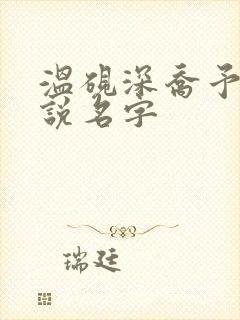 温砚深喬予
說名字
瑞廷